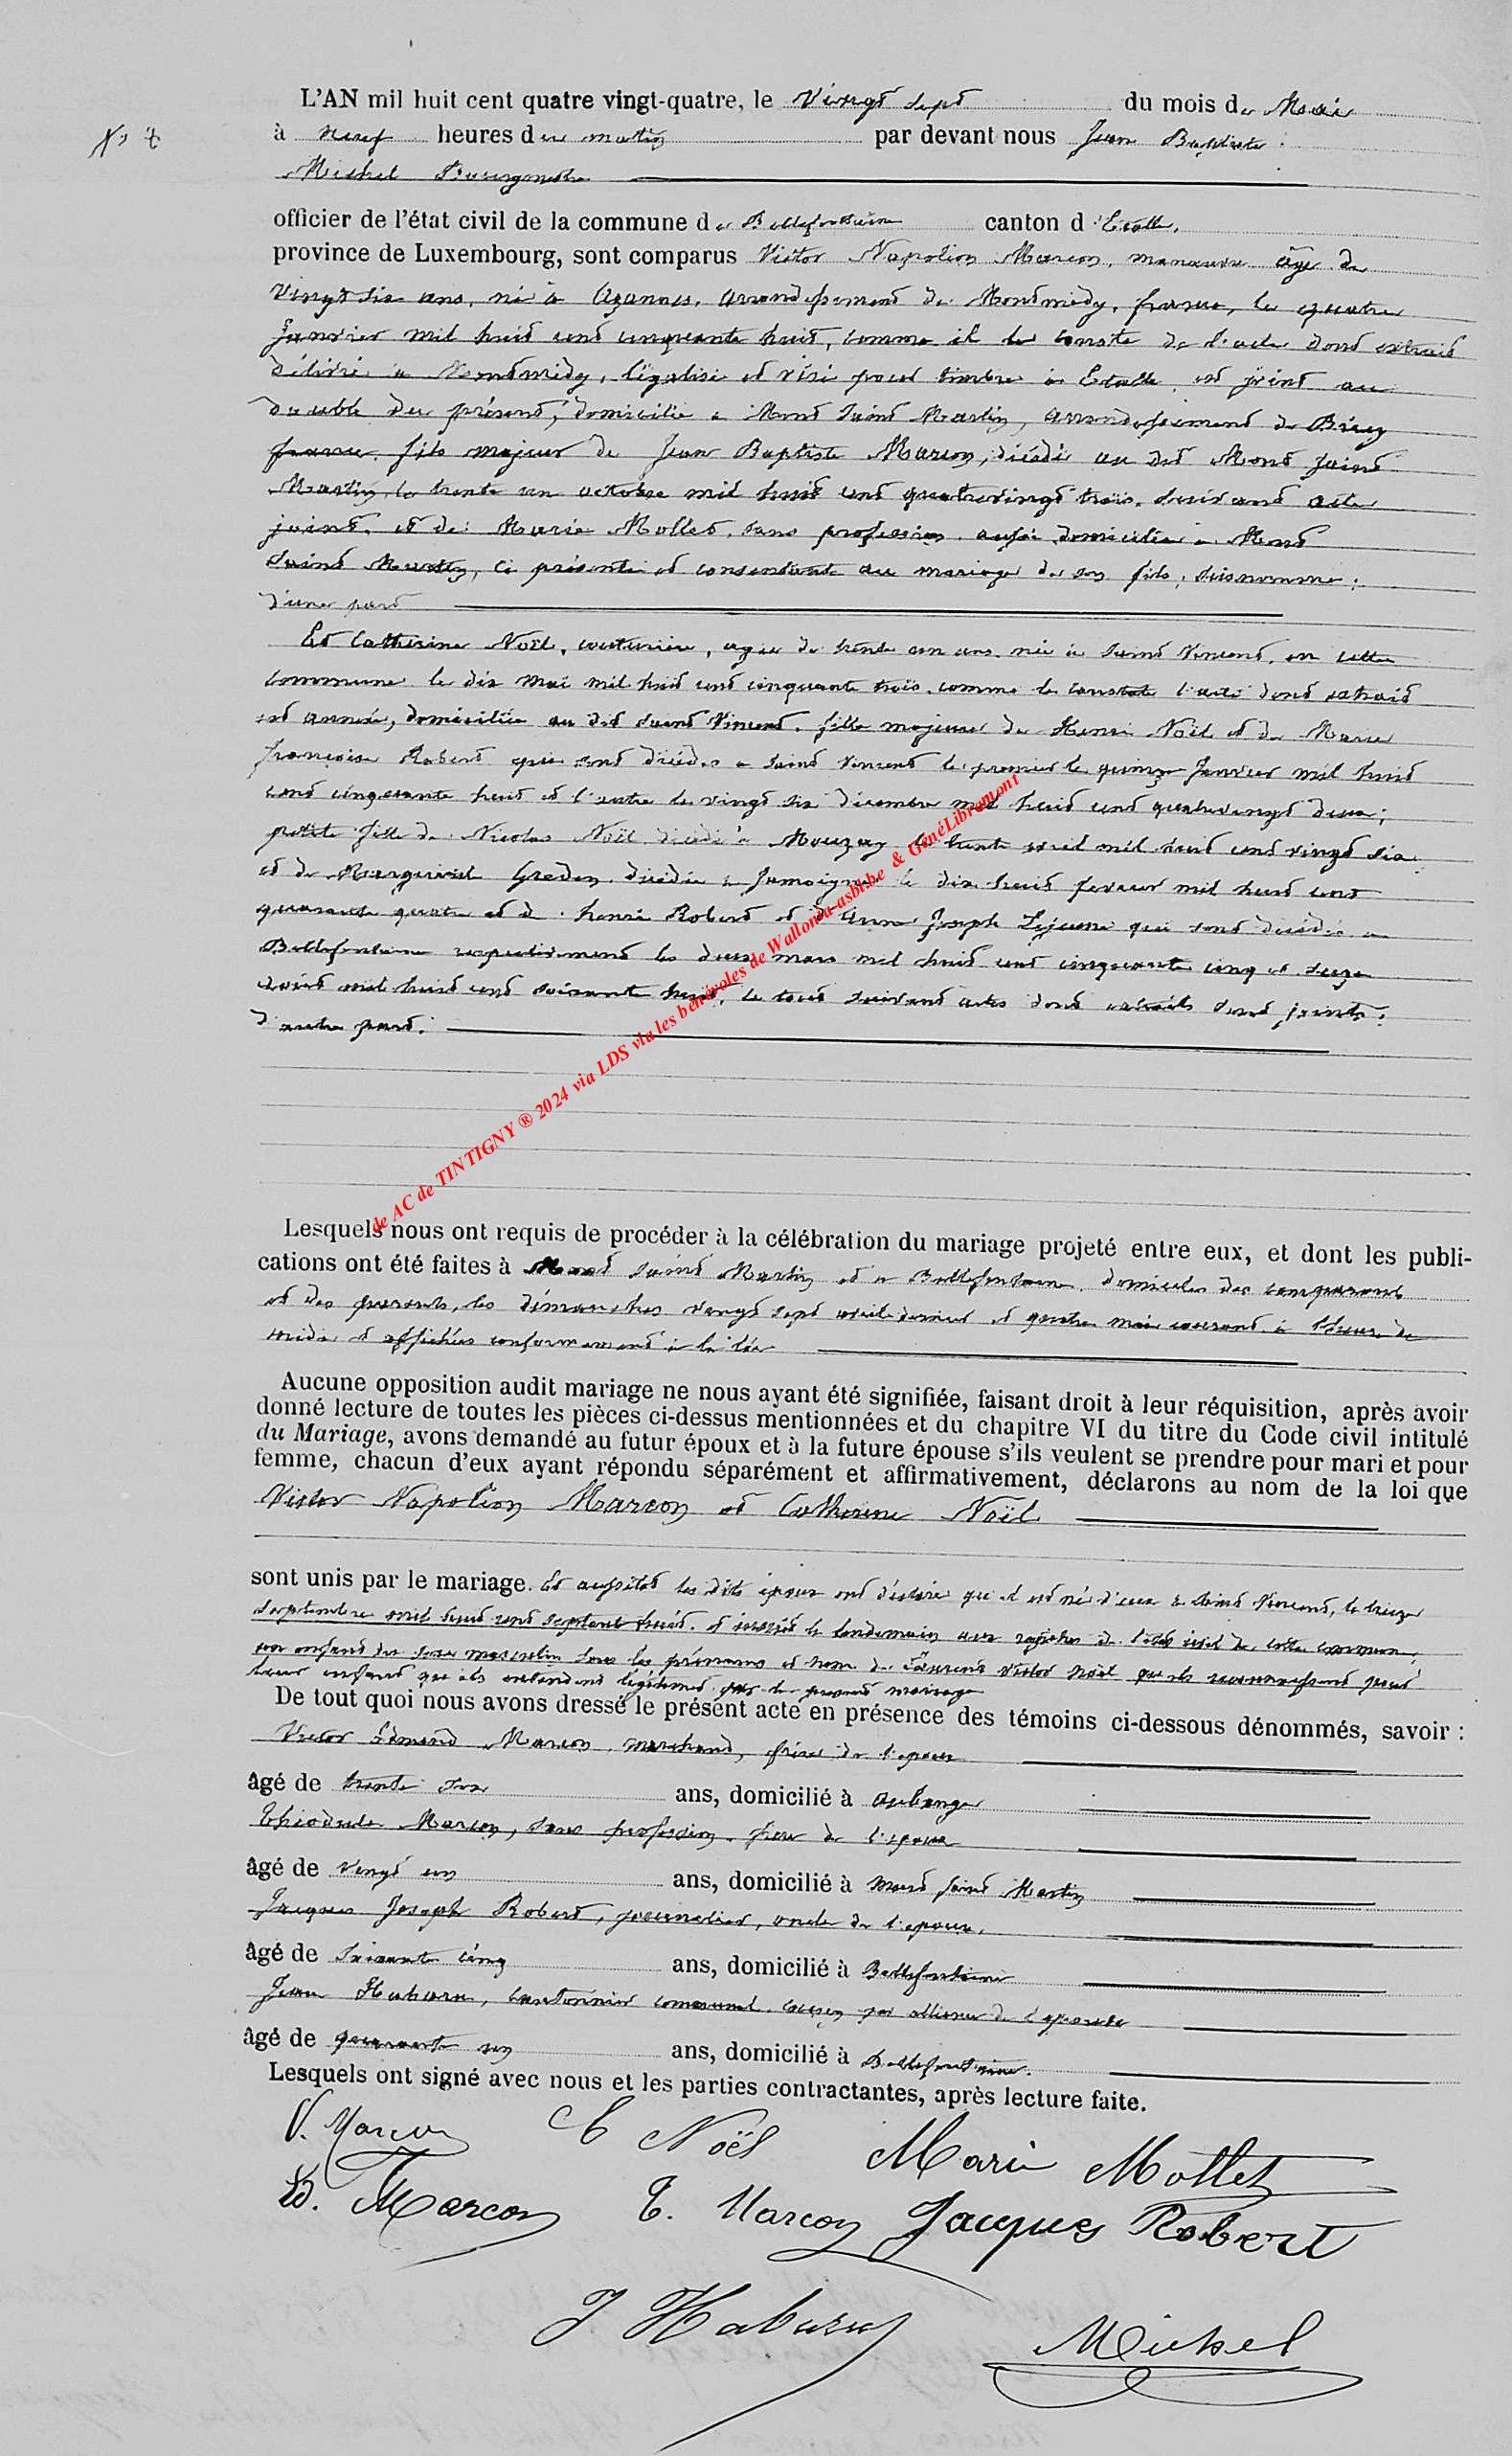 N° 7
L'AN mil huit cent quatre vingt-quatre, le Vingt sept du mois de Mai
à neuf heures du matin par devant nous Jean Baptiste
Michel Bourgmestre
officier de l'état civil de la commune de Bellefontaine canton d'Etalle,
province de Luxembourg, sont comparus Victor Napoléon Marcon, manœuvre âgé de
vingt six ans, né à Azannes, arrondissement de Montmédy, france, le quatre
Janvier mil huit cent cinquante huit, comme il le conste de l'acte dont extrait
délivré à Montmédy, légalisé et visé pour timbre à Etalle, est joint au
double du présent, domicilié à Mont Saint Martin, arrondissement de Briey
france, fils majeur de Jean Baptiste Marcon, décédé au dit Mont Saint
Martin, le trente un octobre mil huit cent quatrevingt trois, suivant acte
joint, et de Marie Mollet, sans profession, aussi domiciliée à Mont
Saint Martin, ci présente et consentante au mariage de son fils, susnommé;
d'une part
Et Catherine Noël, couturière, agée de trente un ans, née à Saint Vincent, en cette
commune le dix mai mil huit cent cinquante trois, comme le constate l'acte dont extrait
est annexé, domiciliée au dit Saint Vincent, fille majeure de Henri Noël et de Marie
françoise Robert qui sont décédés à Saint Vincent le premier le quinze Janvier mil huit
cent cinquante huit et l'autre le vingt six décembre mil huit cent quatrevingt deux;
petite fille de Nicolas Noël décédé à Mouzay le trente avril mil huit cent vingt six
et de Marguerite Greden, décédée à Jamoigne le dix huit fevrier mil huit cent
quarante quatre et de henri Robert et d'Anne Joseph Lejeune qui sont décédés à
Bellefontaine respectivement les deux mars mil huit cent cinquante cinq et seize
août mil huit cent soixante huit, le tout suivant actes dont extraits sont joints;
d'autre part.
Lesquels nous ont requis de procéder à la célébration du mariage projeté entre eux, et dont les publi-
cations ont été faites à Mont Saint Martin et à Bellefontaine, domiciles des comparants
et des parents, les dimanches vingt sept avril dernier et quatre mai courant, à l'heure de
midi et affichées conformément à la loi
Aucune opposition audit mariage ne nous ayant été signifiée, faisant droit à leur réquisition, après avoir
donné lecture de toutes les pièces ci-dessus mentionnées et du chapitre VI du titre du Code civil intitulé
du Mariage, avons demandé au futur époux et à la future épouse s'ils veulent se prendre pour mari et pour
femme, chacun d'eux ayant répondu séparément et affirmativement, déclarons au nom de la loi que
Victor Napoléon Marcon et Catherine Noël
sont unis par le mariage. Et aussitôt les dits époux ont déclaré qu'il est né d'eux à Saint Vincent, le treize
septembre mil huit cent septante huit, et inscrit le lendemain aux registres de l'état civil de cette commune,
un enfant du sexe masculin sous les prénoms et nom de Laurent Victor Noël qu'ils reconnaissent pour
leur enfant qu'ils entendent légitimer par le présent mariage
De tout quoi nous avons dressé le présent acte en présence des témoins ci-dessous dénommés, savoir :
Victor Edmond Marcon, marchand, frère de l'époux
âgé de trente deux ans, domicilié à Aubange
Théodule Marcon, sans profession, frère de l'époux
âgé de vingt un ans, domicilié à Mont Saint Martin
Jacques Joseph Robert, journalier, oncle de l'épouse,
âgé de soixante cinq ans, domicilié à Bellefontaine
Jean Habaru, cantonnier communal, cousin par alliance de l'épouse
âgé de quarante un ans, domicilié à Bellefontaine.
Lesquels ont signé avec nous et les parties contractantes, après lecture faite.
V. Marcon C Noël Marie Mollet
Ed. Marcon T. Marcon Jacques Robert
J Habaru Michel
de AC de TINTIGNY ® 2024 via LDS via les bénévoles de Wallonia-asbl.be & GénéLibramont